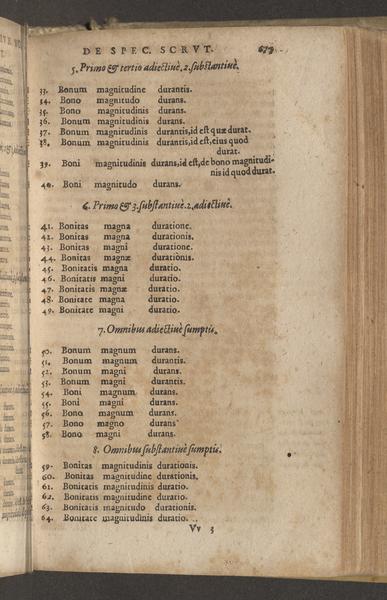 DE SPEC. SCRVT. 677
5. Primo & tertio adiectiuè, 2. substantiuè.
33. Bonum magnitudine durantis.
34. Bono magnitudo durans.
35. Bono magnitudinis durans.
36. Bonum magnitudinis durans.
37. Bonum magnitudinis durantis, id est quæ durat.
38. Bonum magnitudinis durantis, id est, eius quod
durat.
39. Boni magnitudinis durans, id est, de bono magnitudi-
nis id quod durat.
40. Boni magnitudo durans.
6. Primo & 3. substantiuè. 2. adiectiuè.
41. Bonitas magna duratione.
42. Bonitas magna durationis.
43. Bonitas magni duratione.
44. Bonitas magnæ durationis.
45. Bonitatis magna duratio.
46. Bonitatis magni duratio.
47. Bonitatis magnæ duratio.
48. Bonitate magna duratio.
49. Bonitate magni duratio.
7. Omnibus adiectiuè sumptis.
50. Bonum magnum durans.
51. Bonum magnum durantis.
52. Bonum magni durans.
53. Bonum magni durantis.
54. Boni magnum durans.
55. Boni magni durans.
56. Bono magnum durans.
57. Bono magno durans
58. Bono magni durans.
8. Omnibus substantiuè sumptis.
59. Bonitas magnitudinis durationis.
60. Bonitas magnitudine durationis.
61. Bonitatis magnitudinis duratio.
62. Bonitatis magnitudine duratio.
63. Bonitatis magnitudo durationis.
64. Bonitate magnitudinis duratio.
Vv 3